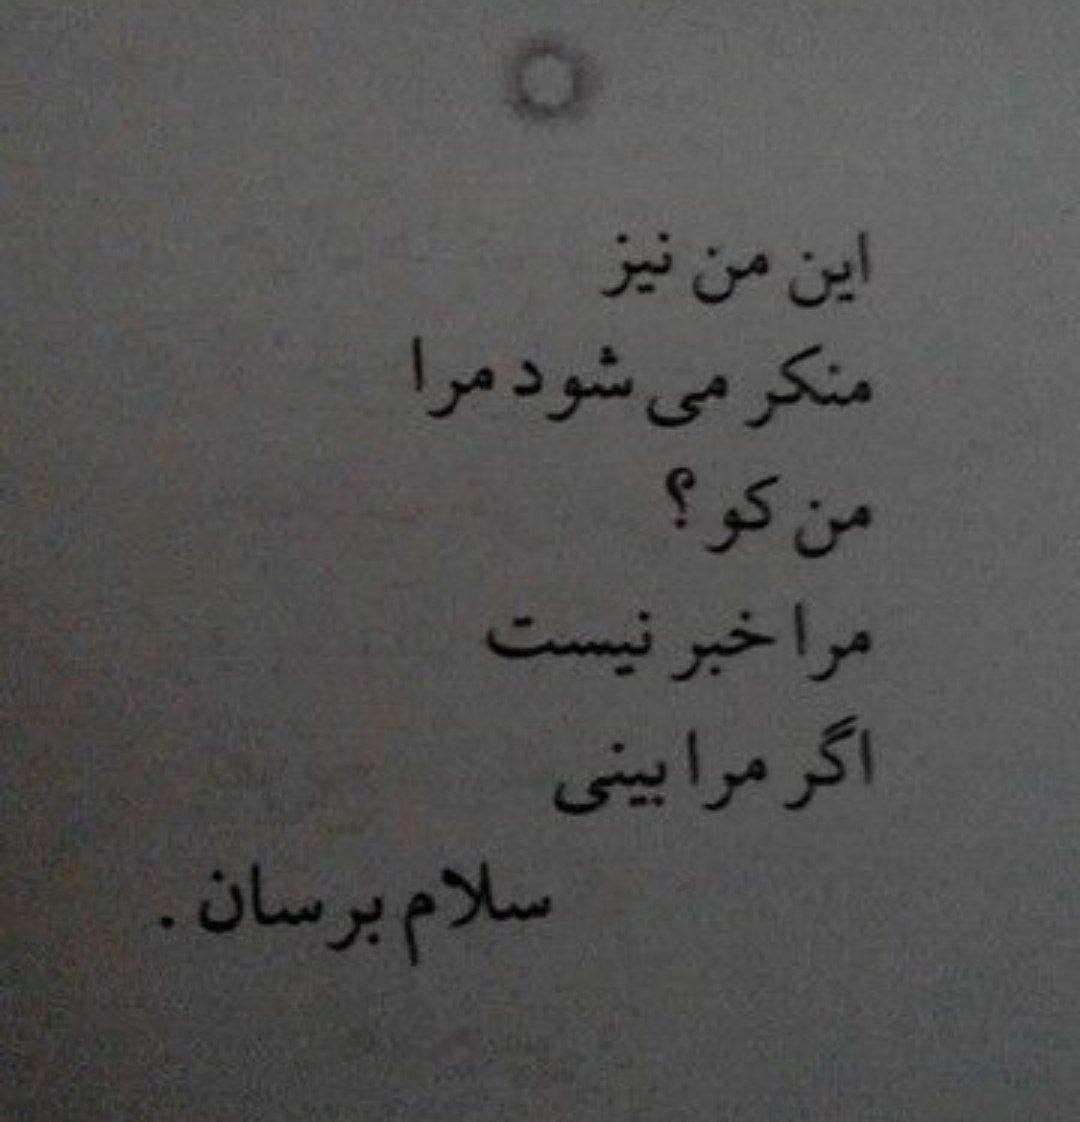 این من نیز
منکر می شود مرا
من کو ؟
مرا خبر نیست
اگر مرا بینی
سلام برسان .